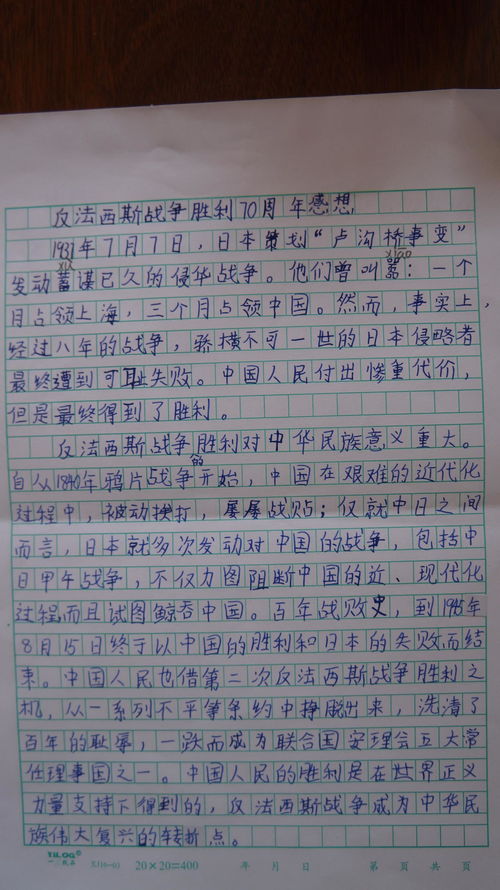 反法西斯战争胜利70周年感想
1937年7月7日，日本策划“卢沟桥事变”
xù xiāo
发动蓄谋已久的侵华战争。他们曾叫嚣：一个
月占领上海，三个月占领中国。然而，事实上，
经过八年的战争，骄横不可一世的日本侵略者
最终遭到可耻失败。中国人民付出惨重代价，
但是最终得到了胜利。
反法西斯战争胜利对中华民族意义重大。
自从1840年鸦片战争的开始，中国在艰难的近代化
过程中，被动挨打，屡屡战败；仅就中日之间
而言，日本就多次发动对中国的战争，包括中
日甲午战争，不仅力图阻断中国的近、现代化
过程而且试图鲸吞中国。百年战败史，到1945年
8月15日终于以中国的胜利和日本的失败而结
束。中国人民也借第二次反法西斯战争胜利之
机，从一系列不平等条约中挣脱出来，洗清了
百年的耻辱，一跃而成为联合国安理会五大常
任理事国之一。中国人民的胜利是在世界正义
力量支持下得到的，反法西斯战争成为中华民
族伟大复兴的转折点。
20×20=400 年 月 日 第 页 共 页